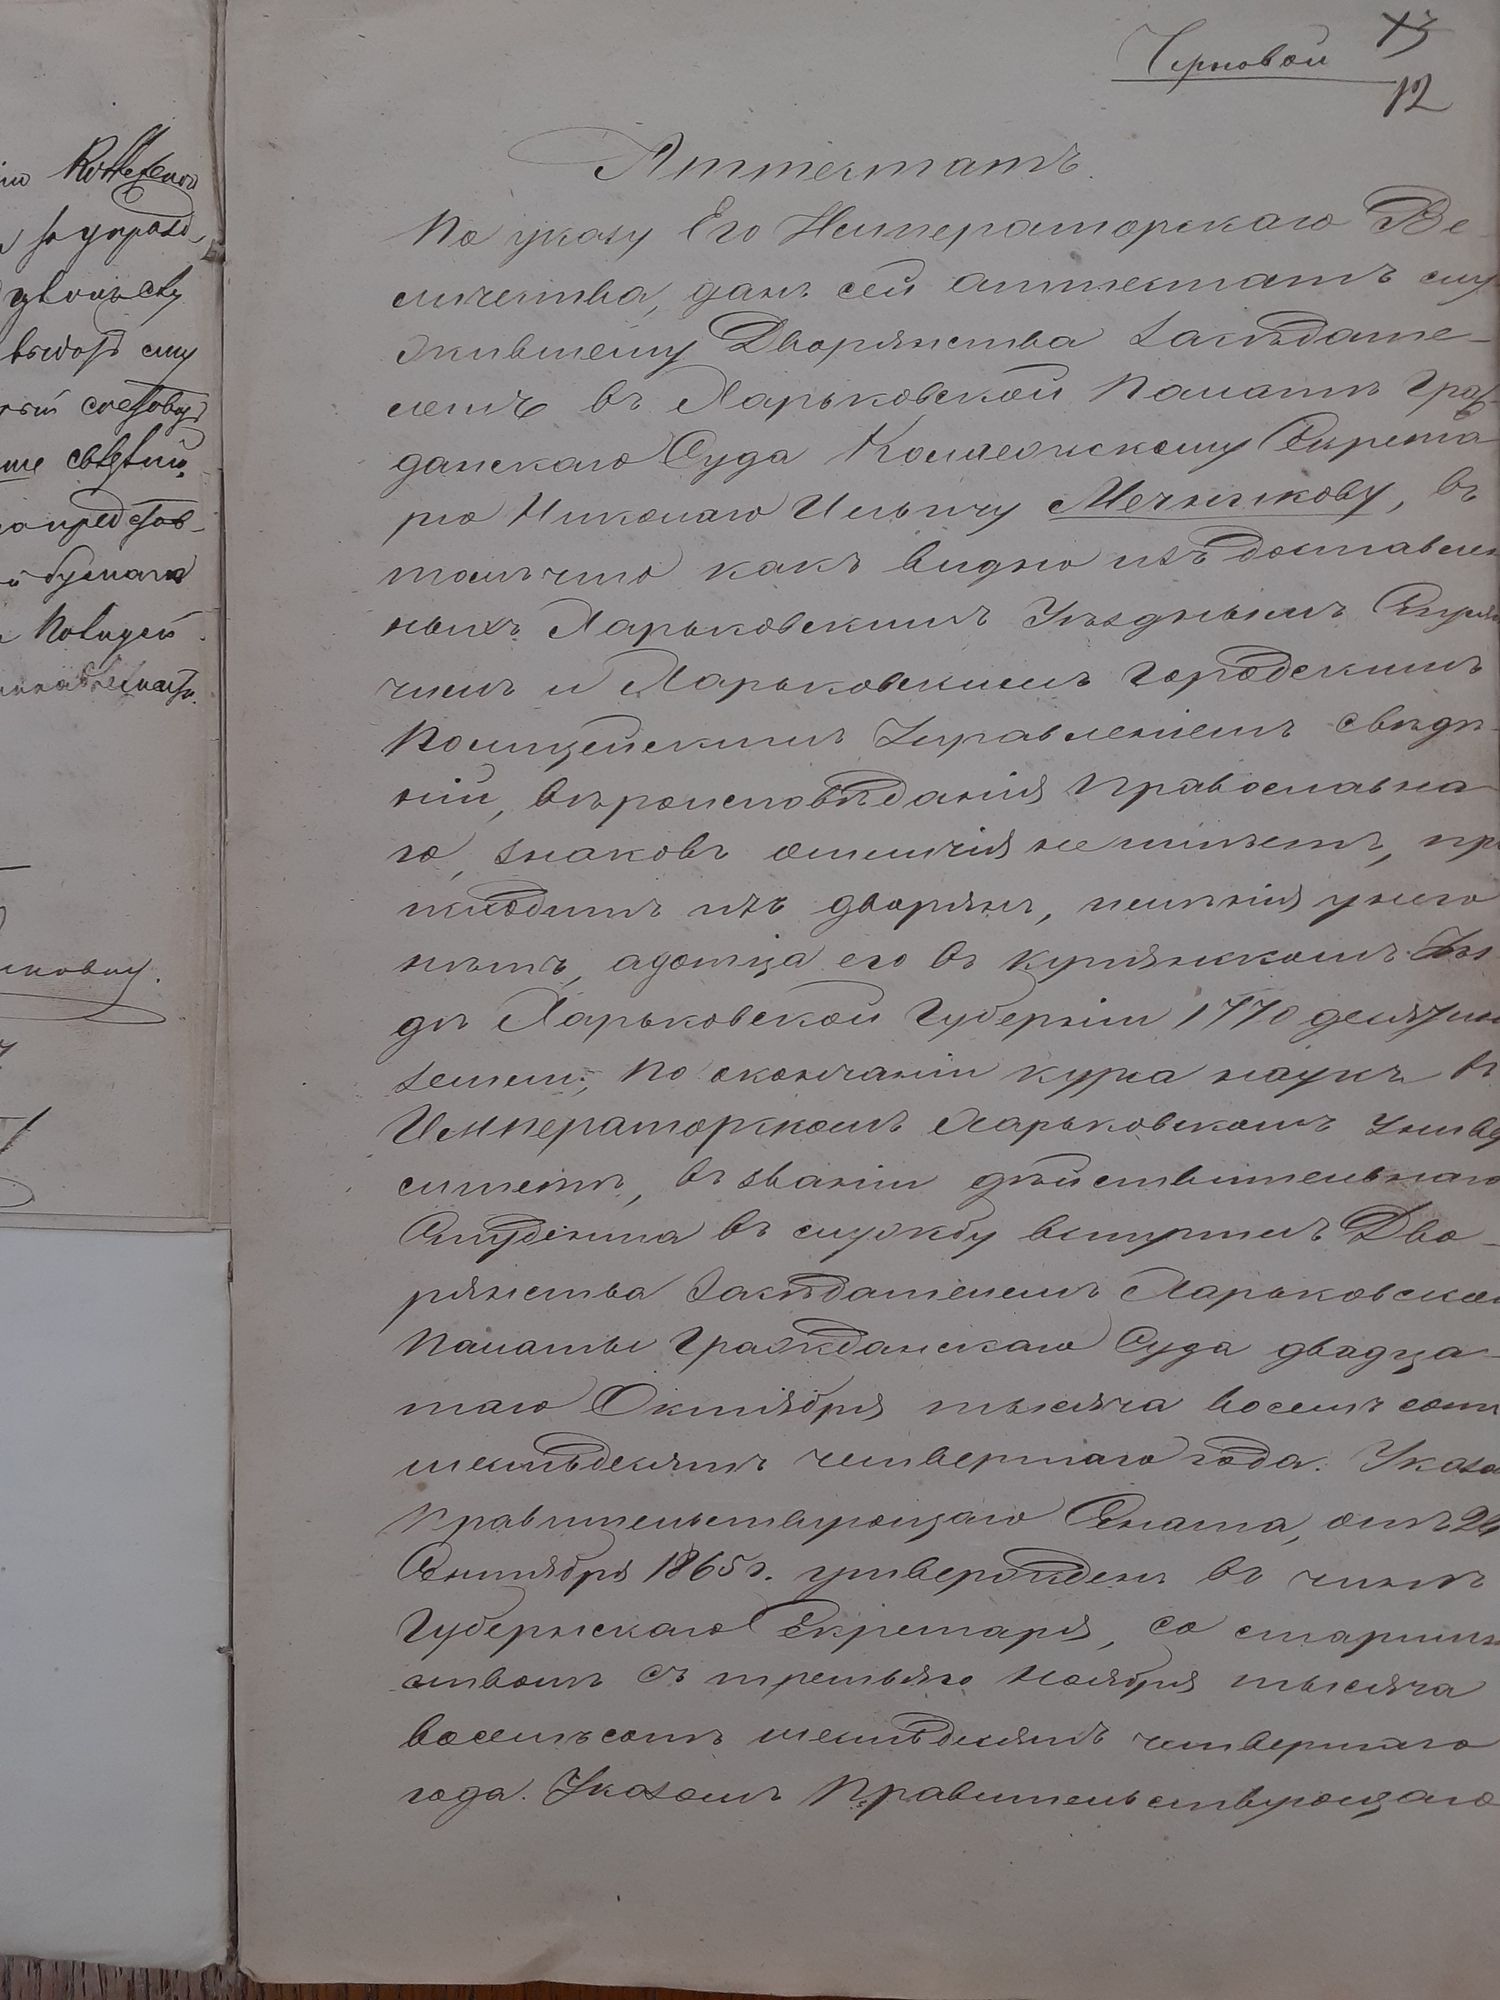 Черновой
13
12
Аттестатъ.
По указу Его Императорскаго Ве-
личества, данъ сей аттестатъ слу
жившему Дворянства Засѣдате-
лемъ въ Харьковской Палатѣ Граж-
данскаго Суда Коллежскому Секрета
рю Николаю Ильичу Мечникову, въ
томъ что какъ видно изъ доставлен
ныхъ Харьковскимъ Уѣзднымъ Стряп
чимъ и Харьковскимъ Городскимъ
Полицейскимъ Управленіемъ свѣдѣ-
ній, вѣроисповѣданія Православна-
го, знаковъ отличія не имѣетъ, про
исходитъ изъ дворянъ, имѣнія у него
нѣтъ, а у отца его въ Купянскомъ Уѣз
дѣ Харьковской Губерніи 1770 десятин
земли; по окончаніи курса наукъ въ
Императорскомъ Харьковскомъ Универ
ситетѣ, въ званіи дѣйствительнаго
Студента въ службу вступилъ Дво-
рянства Засѣдателемъ Харьковской
Палаты Гражданскаго Суда двадца-
таго Октября тысяча восемь сотъ
шестьдесятъ четвертаго года. Указо
Правительствующаго Сената, отъ 24
Сентября 1865 г. утвержденъ въ чинѣ
Губернскаго Секретаря, со старшин
ствомъ съ третьяго Ноября тысяча
восемьсотъ шестьдесятъ четвертаго
года. Указомъ Правительствующаго